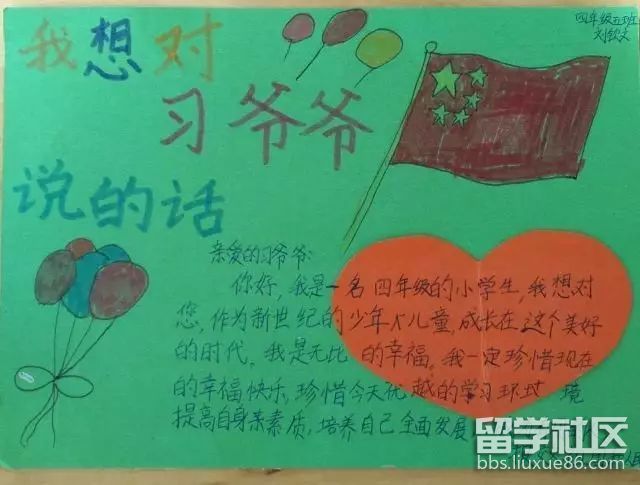 我想对
习爷爷
说的话
四年级五班
刘钦文
亲爱的习爷爷:
你好,我是一名四年级的小学生,我想对
您,作为新世纪的少年儿童,成长在这个美好
的时代,我是无比的幸福。我一定珍惜现在
的幸福快乐,珍惜今天优越的学习环境
提高自身素质,培养自己全面发展
留学社区
bbs.liuxue86.com